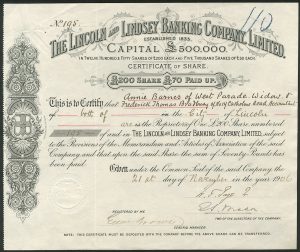 No 195.
110
THE LINCOLN AND LINDSEY BANKING COMPANY LIMITED.
ESTABLISHED 1833.
CAPITAL £500,000.
IN TWELVE HUNDRED & FIFTY SHARES OF £200 EACH AND FIVE THOUSAND SHARES OF £50 EACH.
CERTIFICATE OF SHARE.
£200 SHARE £70 PAID UP.
Annie Barnes of West Parade Widow &
This is to Certify that Frederick Thomas
both of in the City of Lincoln
are the Proprietors of One £200 Share numbered
of and in THE LINCOLN AND LINDSEY BANKING COMPANY LIMITED, subject
to the Provisions of the Memorandum and Articles of Association of the said
Company and that upon the said Share the sum of Seventy Pounds has been
paid.
Given under the Common Seal of the said Company, the
21st day of November in the year 1906
REGISTERED BY ME
GENERAL MANAGER.
TWO OF THE DIRECTORS OF THE COMPANY.
NOTE. THIS CERTIFICATE MUST BE DEPOSITED WITH THE COMPANY BEFORE THE ABOVE SHARE CAN BE TRANSFERRED.